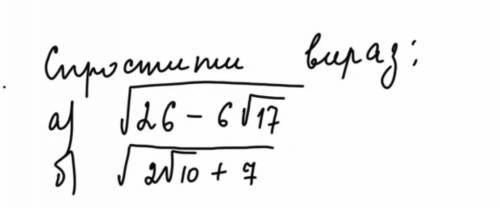 Спростити вираз:
а) √(26 - 6√17)
б) √(2√10 + 7)